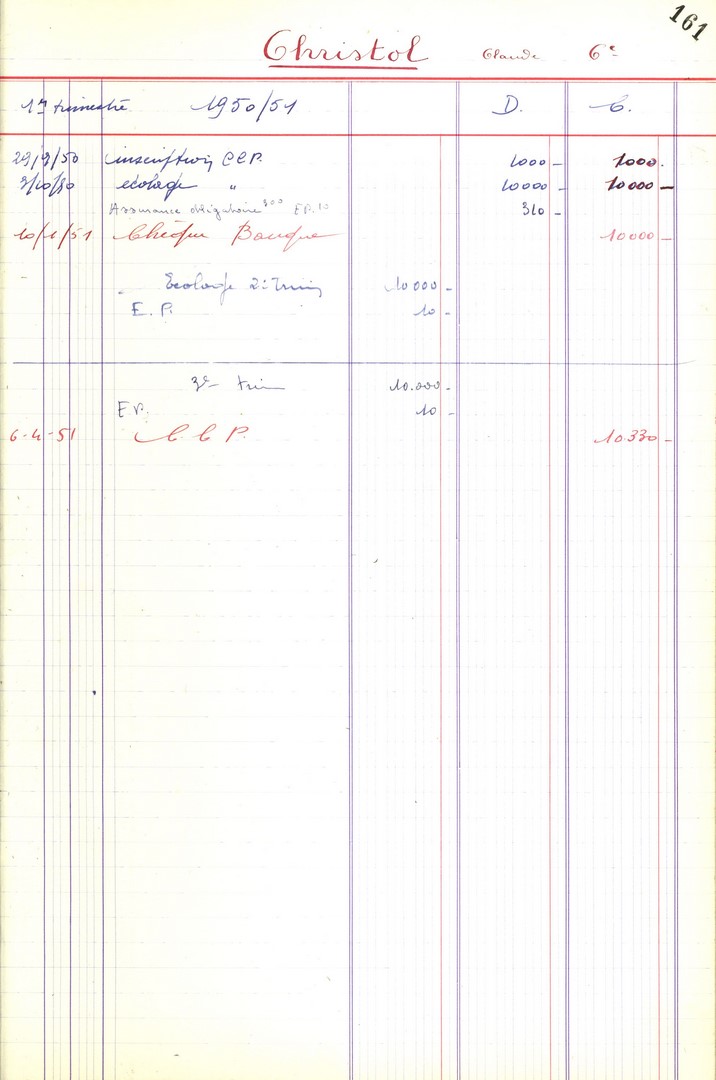 161
Christol Claude 6e
1er trimestre 1950/51 D. C.
29/9/50 inscription C.C.P. 1000 - 1000.
3/10/50 écolage " 10000 - 10000 -
Assurance obligatoire 300 E.P. 10 310 -
10/1/51 Chèque Banque 10000 -
Ecolage 2e Trim 10000 -
E.P. 10 -
3e trim 10.000 -
E.P. 10 -
6-4-51 C.C.P. 10.330 -